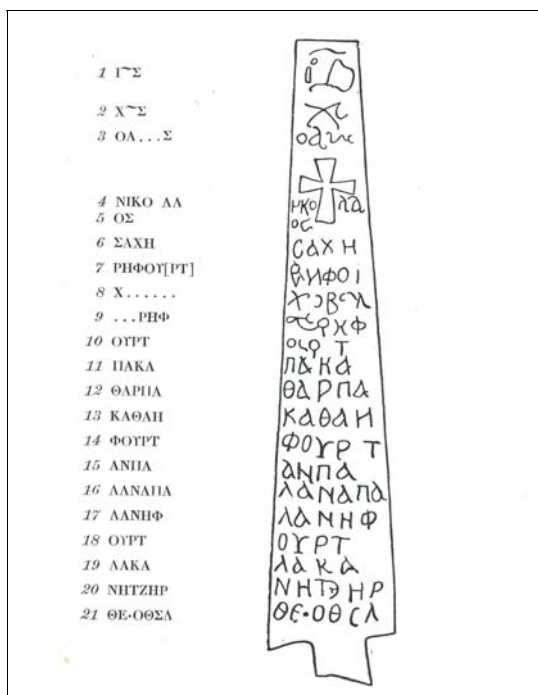 1 Ι~Σ
2 Χ~Σ
3 ΟΑ...Σ
4 ΝΙΚΟ ΛΑ
5 ΟΣ
6 ΣΑΧΗ
7 ΡΗΦΟΥ[ΡΤ]
8 Χ......
9 ...ΡΗΦ
10 ΟΥΡΤ
11 ΠΑΚΑ
12 ΘΑΡΠΑ
13 ΚΑΘΑΗ
14 ΦΟΥΡΤ
15 ΑΝΠΑ
16 ΛΑΝΑΠΑ
17 ΛΑΝΗΦ
18 ΟΥΡΤ
19 ΛΑΚΑ
20 ΝΗΤΖΗΡ
21 ΘΕ·ΟΘΣΛ
ΗΚΟ ΛΑ
ΟϹ
ϹΑΧΗ
ΡΗΦΟΙ
ΠΑΚΑ
ΘΑΡΠΑ
ΚΑΘΑΗ
ΦΟΥΡΤ
ΑΝΠΑ
ΛΑΝΑΠΑ
ΛΑΝΗΦ
ΟΥΡΤ
ΛΑΚΑ
ΝΗΤΖΗΡ
ΘΕ·ΟΘϹΛ